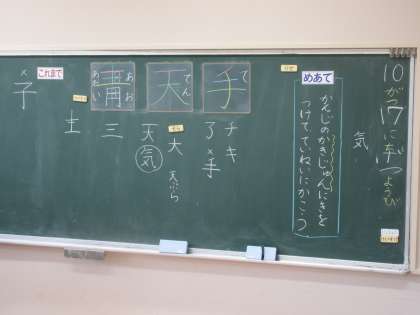 10がつ17にち
ようび
気
めあて
かんじのかきじゅんにきを
つけて、ていねいにかこう。
手
て
チキ
了×手
天
てん
そら
大 天ぷら
天気
青
あお
あおい
三
主
これまで
×子